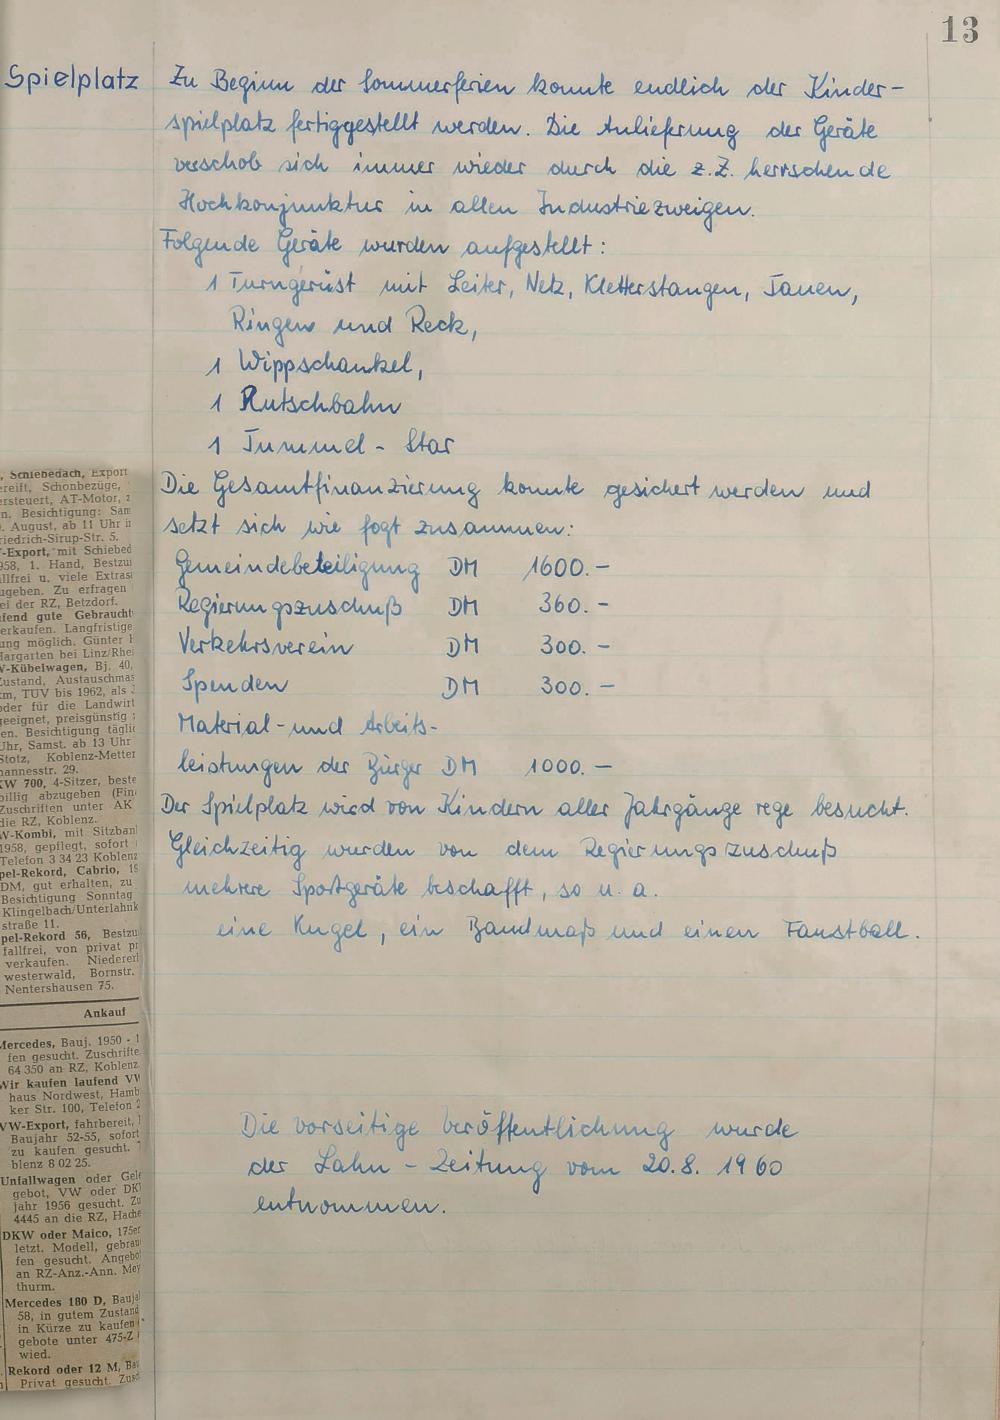 13
Spielplatz
Zu Beginn der Sommerferien konnte endlich der Kinder-
spielplatz fertiggestellt werden. Die Anlieferung der Geräte
verschob sich immer wieder durch die z.Z. herrschende
Hochkonjunktur in allen Industriezweigen.
Folgende Geräte wurden aufgestellt:
1 Turngerüst mit Leiter, Netz, Kletterstangen, Tauen,
Ringen und Reck,
1 Wippschaukel,
1 Rutschbahn
1 Tummel - Star
Die Gesamtfinanzierung konnte gesichert werden und
setzt sich wie fogt zusammen:
Gemeindebeteiligung DM 1600.-
Regierungszuschuß DM 360.-
Verkehrsverein DM 300.-
Spenden DM 300.-
Material- und Arbeits-
leistungen der Bürger DM 1000.-
Der Spielplatz wird von Kindern aller Jahrgänge rege besucht.
Gleichzeitig wurden von dem Regierungszuschuß
mehrere Sportgeräte beschafft, so u. a.
eine Kugel, ein Bandmaß und einen Faustball.
Die vorseitige Veröffentlichung wurde
der Lahn - Zeitung vom 20.8. 1960
entnommen.
, Schiebedach, Export
ereift, Schonbezüge,
ersteuert, AT-Motor,
n. Besichtigung: Sam
. August, ab 11 Uhr
riedrich-Sirup-Str. 5.
-Export, mit Schiebed
958, 1. Hand, Bestzu
llfrei u. viele Extras
ugeben. Zu erfragen
ei der RZ, Betzdorf.
ufend gute Gebraucht
erkaufen. Langfristige
ung möglich. Günter
argarten bei Linz/Rhei
W-Kübelwagen, Bj. 40,
Zustand, Austauschmas
km, TÜV bis 1962, als
oder für die Landwirt
geeignet, preisgünstig
en. Besichtigung täglic
Uhr, Samst. ab 13 Uhr
Stotz, Koblenz-Metter
annesstr. 29.
KW 700, 4-Sitzer, beste
billig abzugeben (Fin
Zuschriften unter AK
die RZ, Koblenz.
W-Kombi, mit Sitzban
1958, gepflegt, sofort
Telefon 3 34 23 Koblenz
pel-Rekord, Cabrio, 19
DM, gut erhalten, zu
Besichtigung Sonntag
Klingelbach/Unterlahnk
straße 11.
pel-Rekord 56, Bestzu
fallfrei, von privat pr
verkaufen. Niederer
westerwald, Bornstr.
Nentershausen 75.
Ankauf
Mercedes, Bauj. 1950 -
fen gesucht. Zuschrifte
64 350 an RZ, Koblenz
Wir kaufen laufend VW
haus Nordwest, Hamb
ker Str. 100, Telefon 2
VW-Export, fahrbereit,
Baujahr 52-55, sofort
zu kaufen gesucht.
blenz 8 02 25.
Unfallwagen oder Gele
gebot, VW oder DK
jahr 1956 gesucht. Zu
4445 an die RZ, Hache
DKW oder Maico, 175er
letzt. Modell, gebrau
fen gesucht. Angebo
an RZ-Anz.-Ann. Mey
thurm.
Mercedes 180 D, Bauja
58, in gutem Zustand
in Kürze zu kaufen
gebote unter 475-Z
wied.
Rekord oder 12 M, Bau
Privat gesucht. Zusc